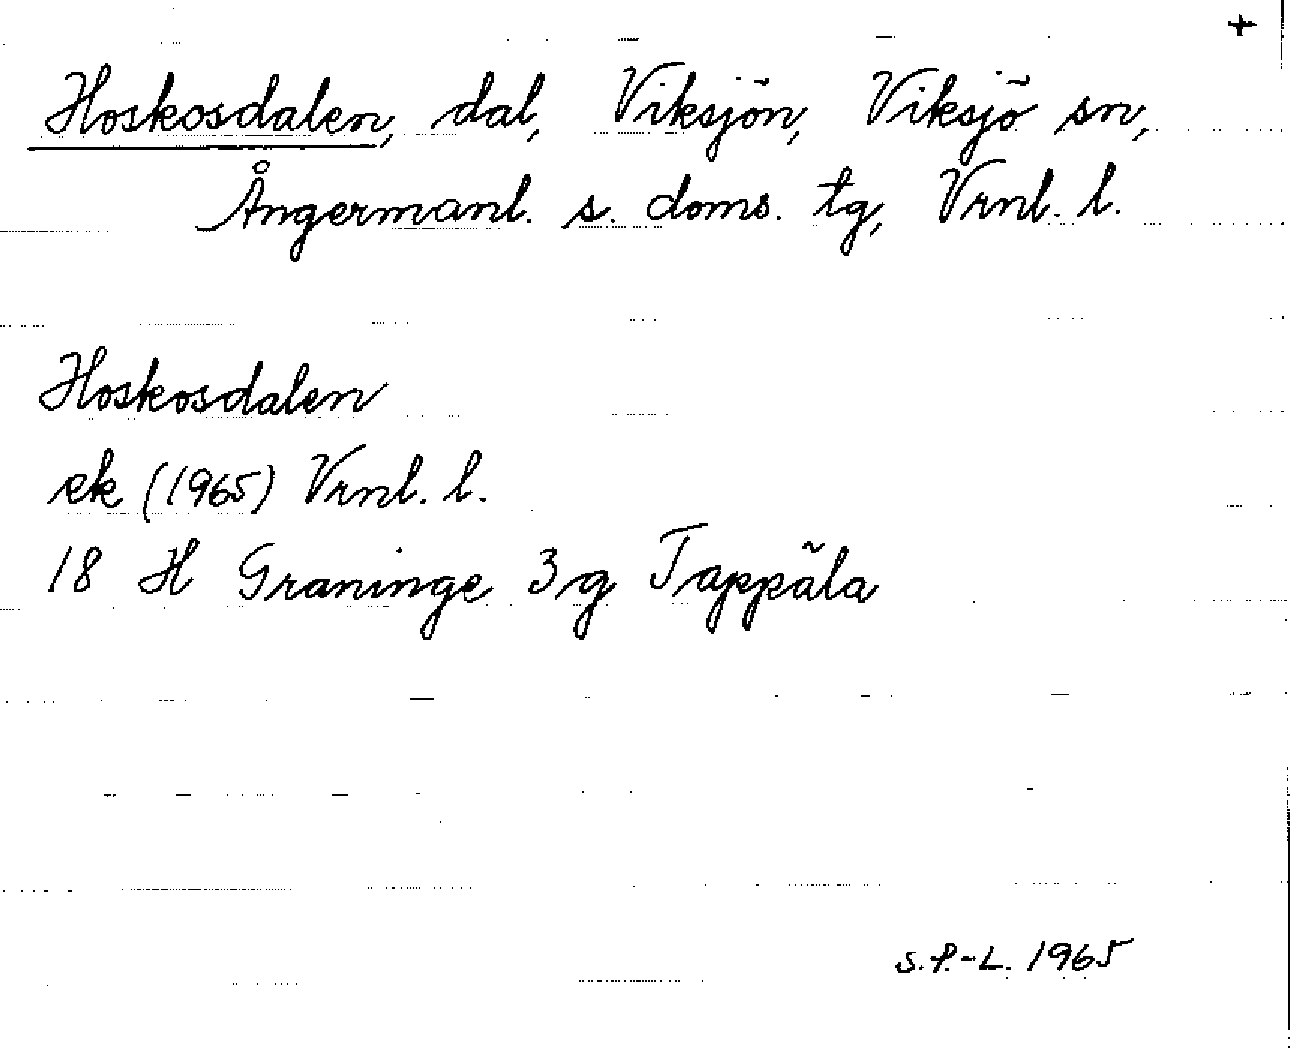 +
Hoskosdalen, dal, Viksjön, Viksjö sn,
Ångermanl. s. doms. tg, Vrnl. l.
Hoskosdalen
ek (1965) Vrnl. l.
18 H Graninge 3g Tappäla
S.P.-L. 1965